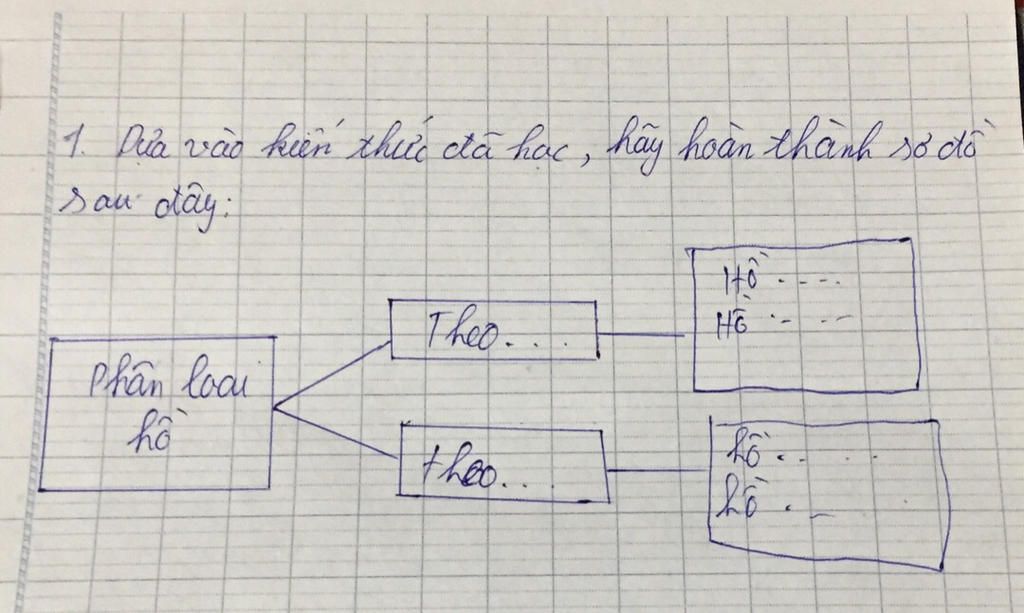 1. Dựa vào kiến thức đã học, hãy hoàn thành sơ đồ
sau đây:
Phân loại
hồ
Theo....
Hồ.----
Hồ.- --
theo...
hồ.. . .
hồ . _